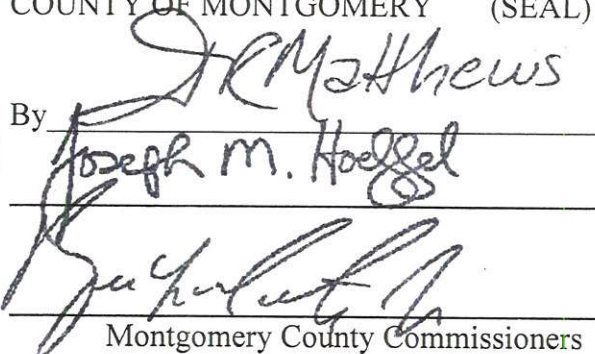 COUNTY OF MONTGOMERY (SEAL)
JRMatthews
By
Joseph M. Hoeffel
Montgomery County Commissioners